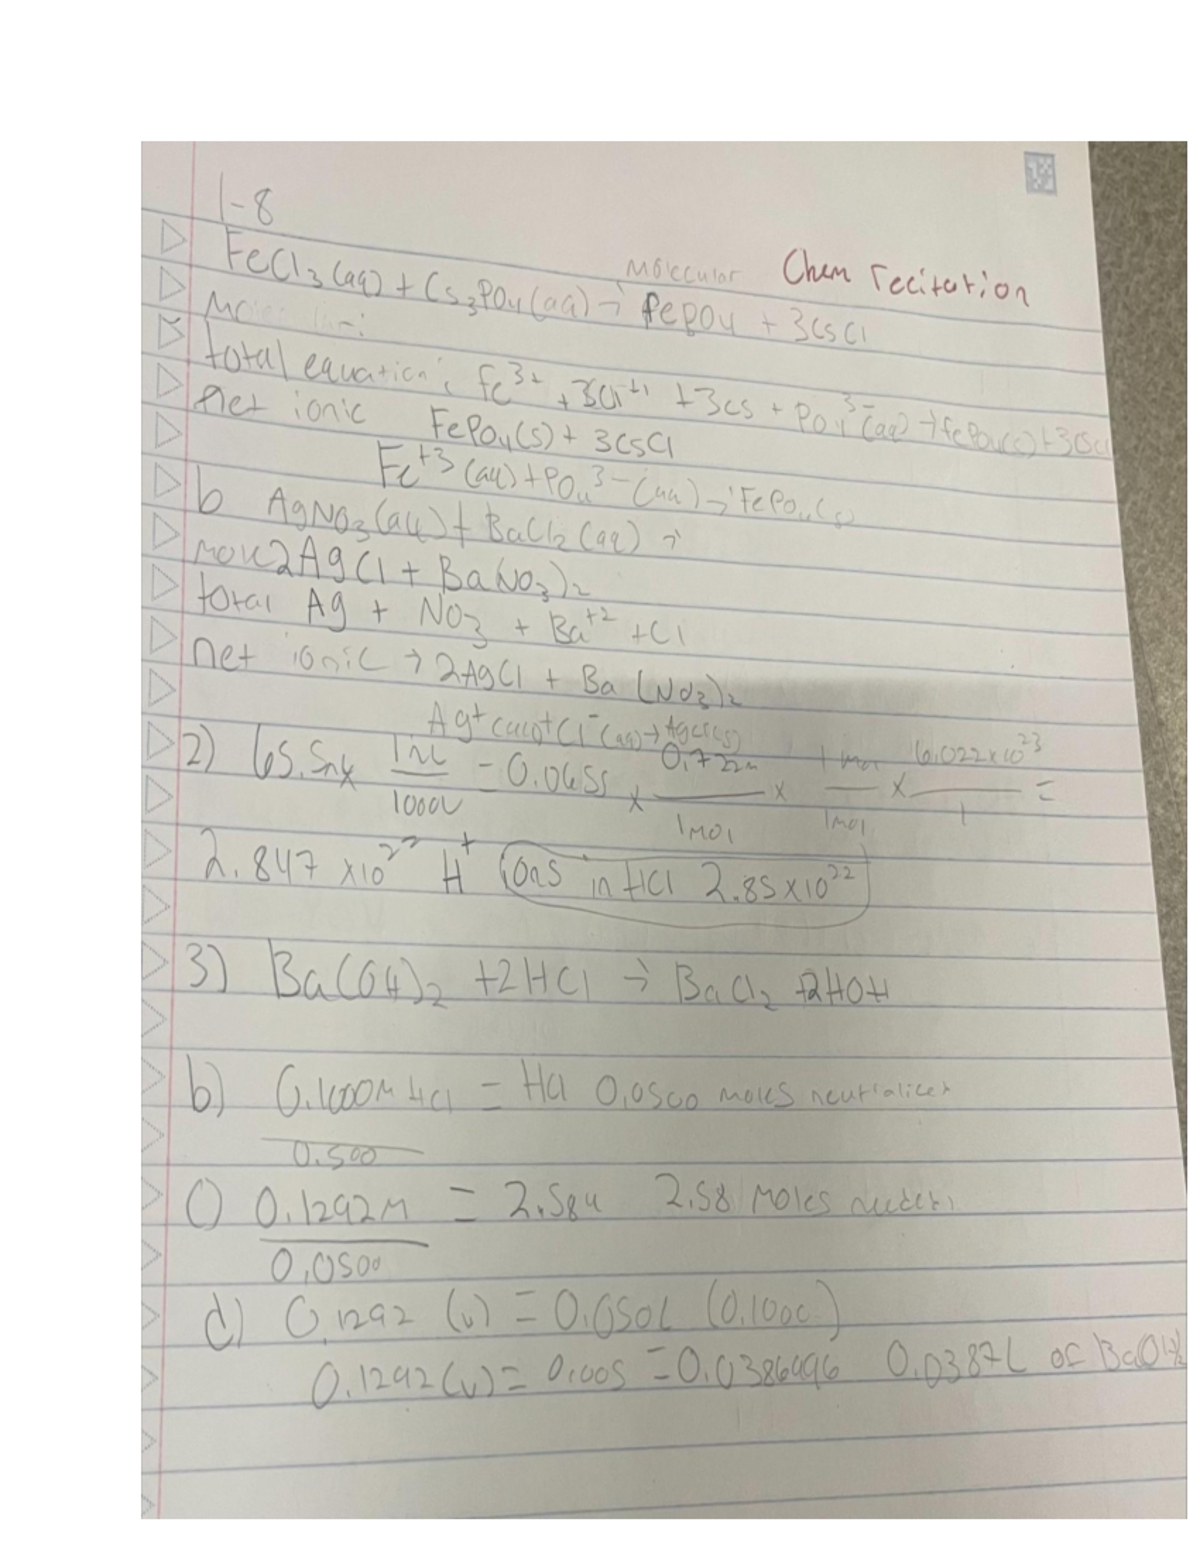 1-8
Molecular Chem recitation
FeCl3 (aq) + Cs3PO4 (aq) → FePO4 + 3CsCl
total equation: Fe3+ + 3Cl + 3Cs + PO4 3- (aq) → FePO4(s) + 3CsCl
net ionic FePO4(s) + 3CsCl
Fe+3 (aq) + PO4 3- (aq) → FePO4(s)
b AgNO3 (aq) + BaCl2 (aq) →
2AgCl + Ba(NO3)2
total Ag + NO3 + Ba+2 + Cl
net ionic → 2AgCl + Ba(NO3)2
Ag+ (aq) + Cl- (aq) → AgCl(s)
2) 65.5 1 1000 = 0.0655 × 0.722 / 1mol × 1 mol / 1mol × 6.022×10^23 / 1 =
2.847 ×10^22 H+ ions in HCl 2.85×10^22
3) Ba(OH)2 + 2HCl → BaCl2 + 2HOH
b) 0.1000M HCl = HCl 0.0500 moles
0.500
c) 0.1292M = 2.584 2.58 Moles
0.0500
d) 0.1292 (v) = 0.050L (0.1000)
0.1292 (v) = 0.005 = 0.0386996 0.0387L of Ba(OH)2